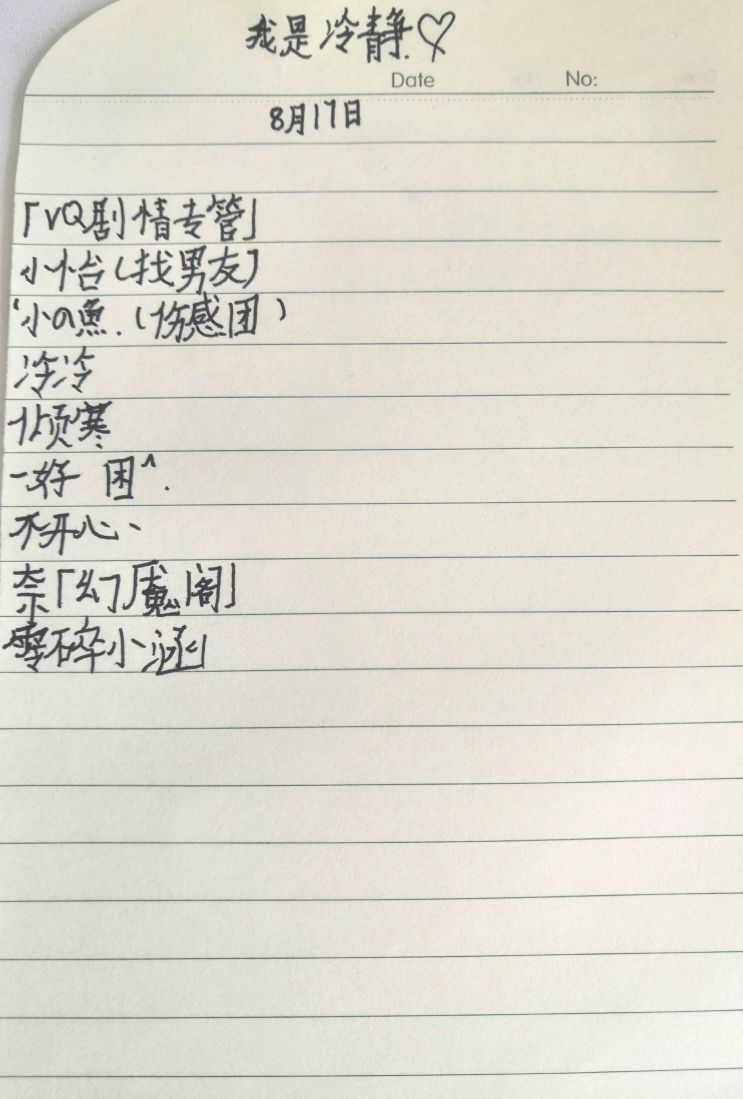 我是冷静.♡
Date No:
8月17日
「VQ剧情专管」
小怡(找男友)
小の鱼.(伤感团)
冷冷
倾寒
一好 困^.
不开心、
奈「幻魔阁」
零碎小涵